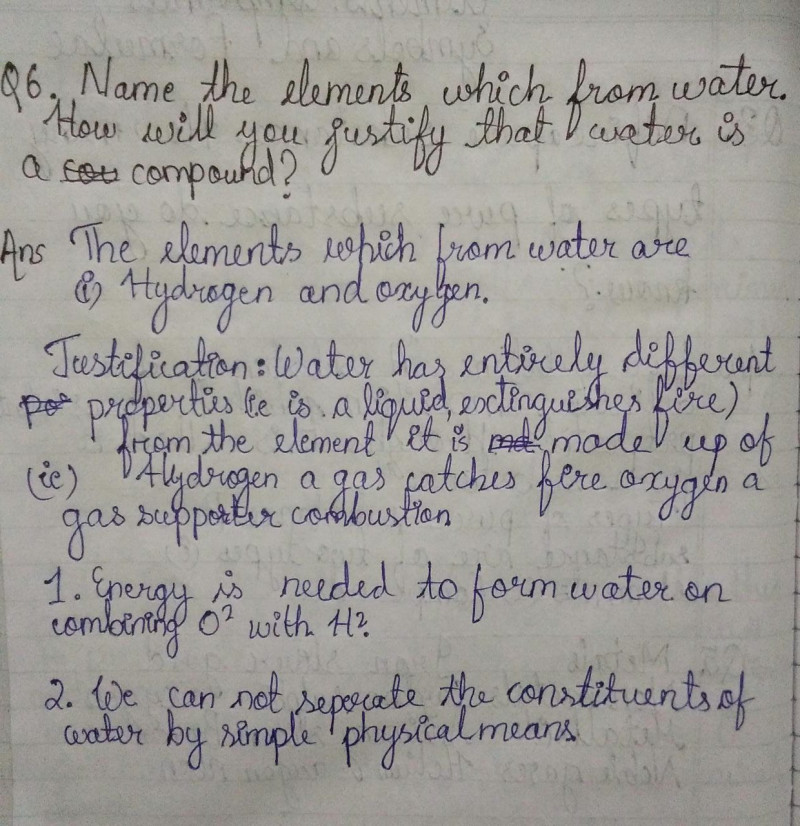 Q6. Name the elements which from water.
How will you justify that water is
a cou compound?
Ans The elements which from water are
(i) Hydrogen and oxygen.
Justification: Water has entirely different
por properties (ie is a liquid, extinguishes fire)
from the element it is made up of
(ie) Hydrogen a gas catches fire oxygen a
gas supporter combustion
1. Energy is needed to form water on
combining O² with H².
2. We can not seperate the constituents of
water by simple physical means.